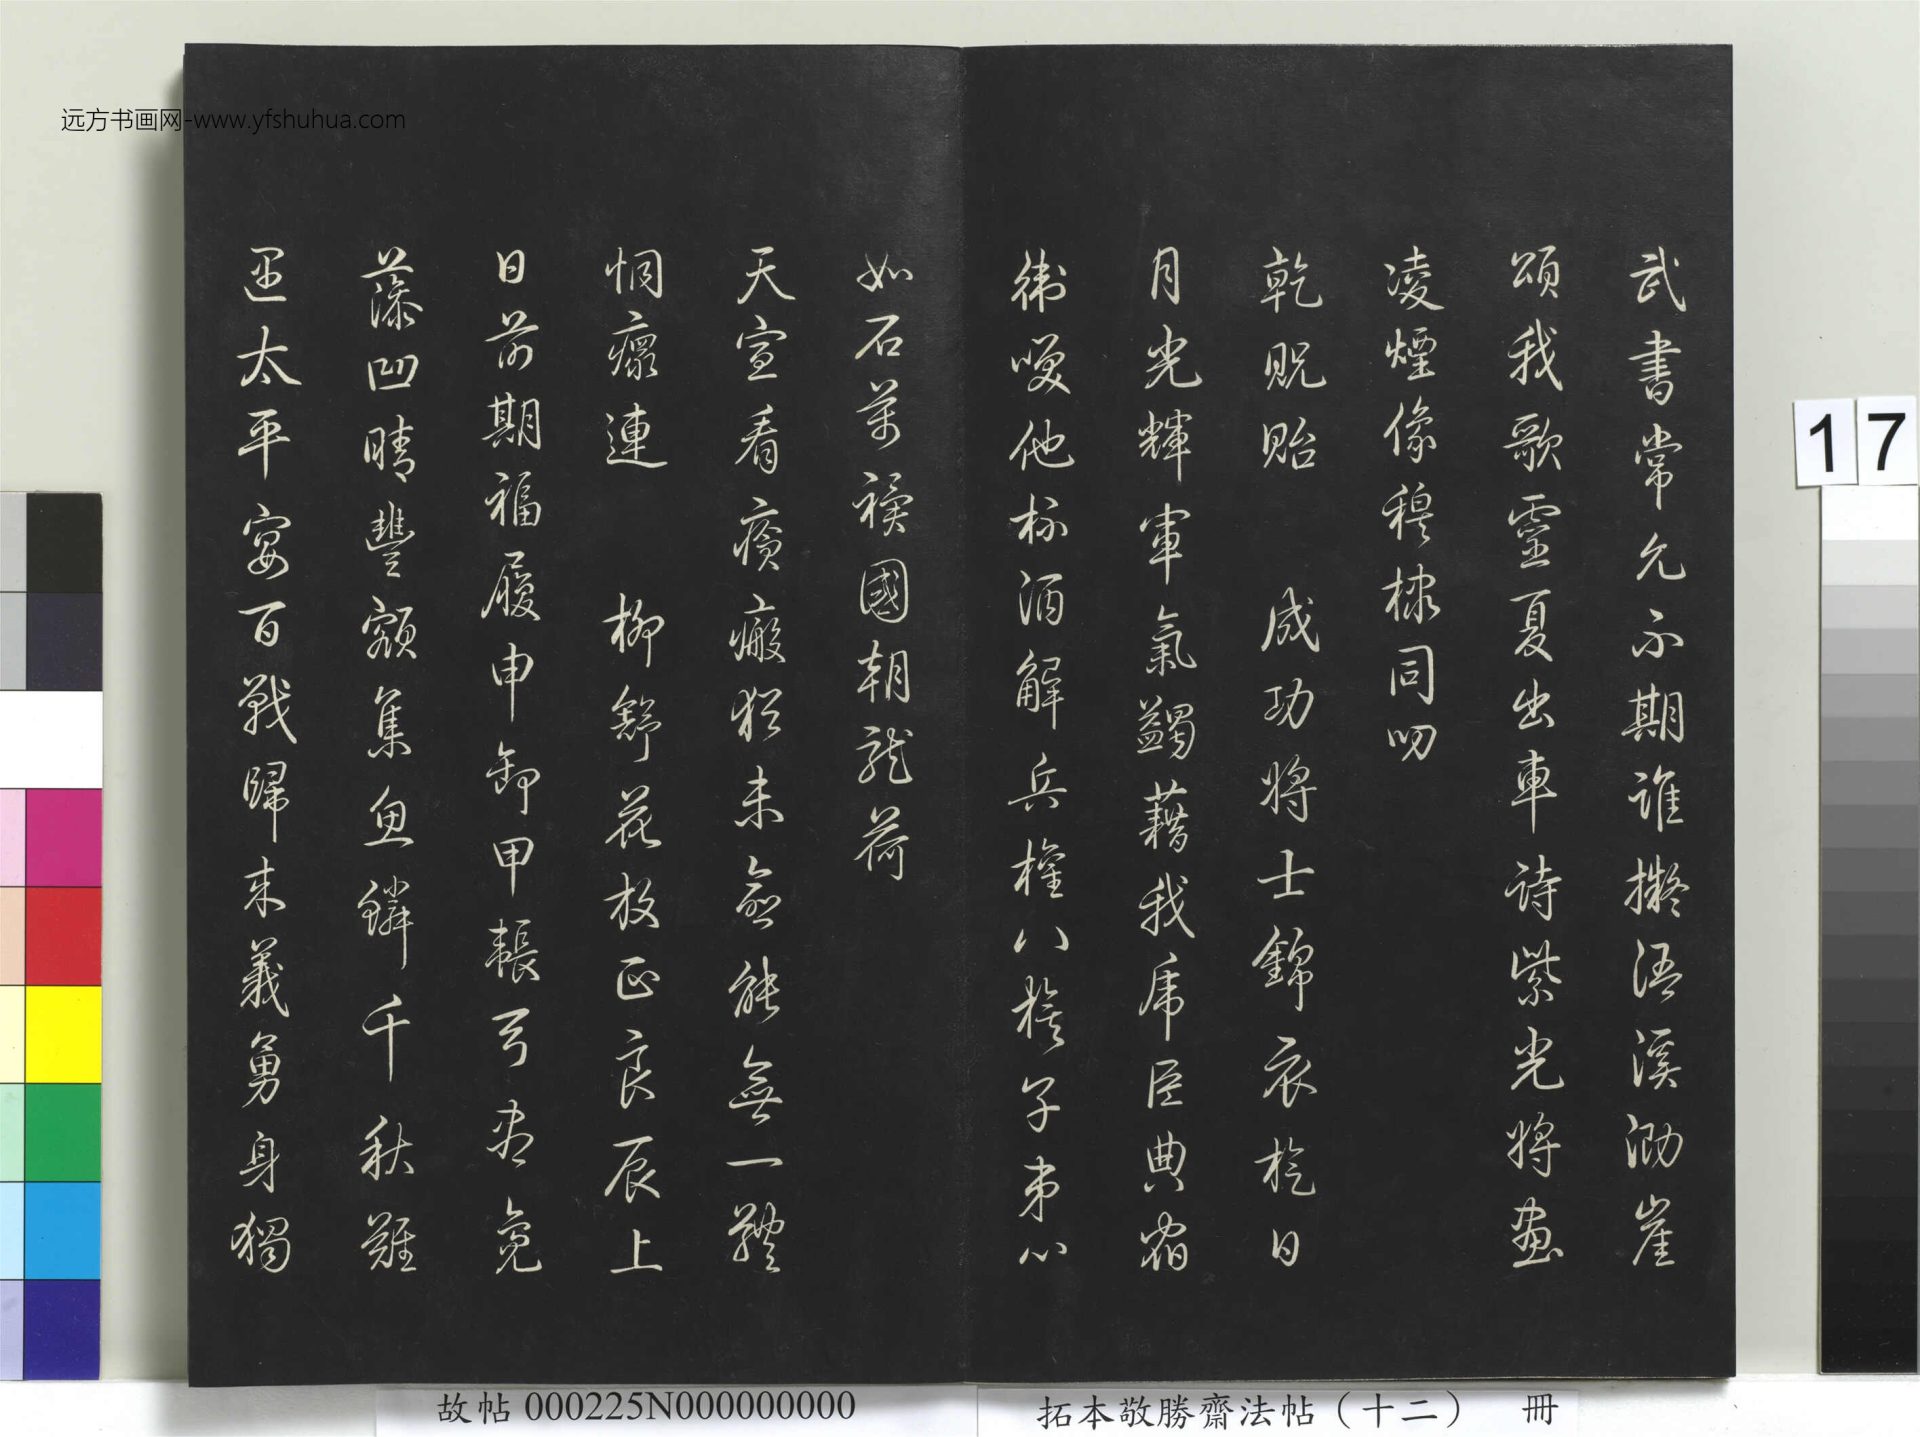 武書常允不期誰擬浯溪泐崖
頌我歌靈夏出車詩紫光將畫
凌煙像穆棣同吻
乾貺貽 成功將士錦衣於日
月光輝軍氣蠲藉我席臣典宿
衛喚他杯酒解兵權八旗子弟心
如石萬禩國朝龍荷
天宣看痍瘢猶未念能無一體
恫瘝連 柳舒花放正良辰上
日前期福履申卸甲帳弓壽兔
藻凹晴豐額集魚鱗千秋難
遇太平宴百戰歸來義勇身獨
远方书画网-www.yfshuhua.com
17
故帖 000225N000000000
拓本敬勝齋法帖（十二） 冊